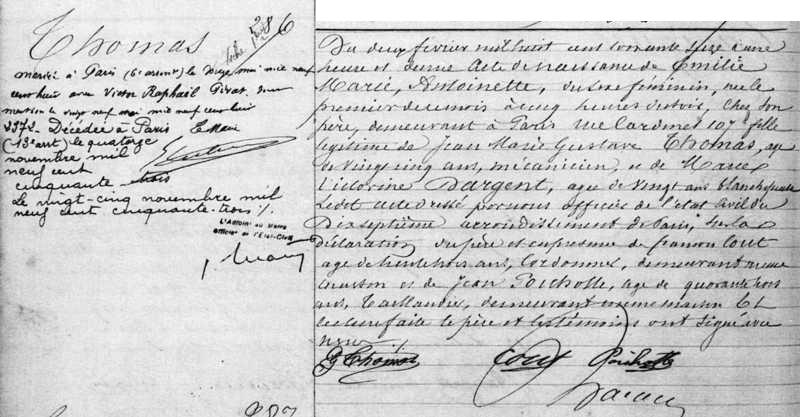 286
Thomas
marié à Paris (6e arrondt) le douze mai mil neuf
cent huit avec Victor Raphaël
mention le vingt neuf mai mil neuf cent huit
Décédée à Paris
(13e arrt) le quatorze
novembre mil
neuf cent
cinquante trois
Le vingt-cinq novembre mil
neuf cent cinquante-trois %
L'Adjoint au Maire
Officier de l'Etat-Civil
Du deux février mil huit cent soixante seize à une
heure et demie Acte de naissance de Emilie
Marie, Antoinette, du sexe féminin, née le
premier de ce mois à cinq heures du soir, chez son
père, demeurant à Paris rue Cardinet 107, fille
légitime de Jean Marie Gustave Thomas, agé
de vingt cinq ans, mécanicien, et de Marie
Victorine Dargent, agée de vingt ans blanchisseuse
Ledit acte dressé par nous officier de l'état civil du
Dixseptième arrondissement de Paris, sur la
déclaration du père et en présence de françois Cout
agé de trente trois ans, Cordonnier, demeurant même
maison et de Jean Poicholle, agé de quarante trois
ans, Taillandier, demeurant même maison Et
lecture faite le père et les témoins ont signé avec
nous %
G Thomas Cout Poicholle
287